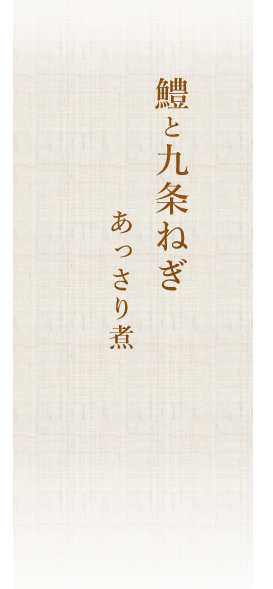 鱧と九条ねぎ
あっさり煮